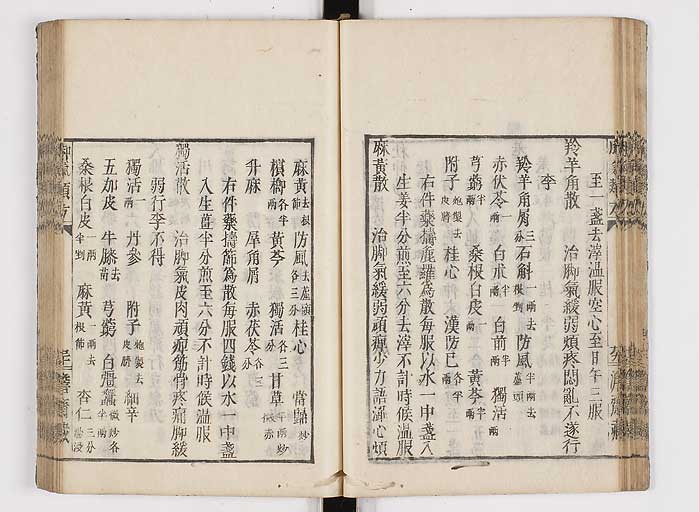 至一盞去滓溫服空心至日午三服
羚羊角散　治脚氣緩弱頑疼悶亂不遂行
李
羚羊角屑三分 石斛一兩去根剉 防風半兩去蘆頭
赤茯苓一兩 白朮半兩 白前半兩 獨活兩
芎藭半兩 桑根白皮兩 黃芩半兩
附子炮製去皮臍 桂心 漢防己各半兩
右件藥擣麄羅為散每服以水一中盞入
生姜半分煎至六分去滓不計時候溫服
麻黃散　治脚氣緩弱頑痺少力語澁心煩
麻黃去根節 防風去蘆頭各三分 桂心 當歸炒
檳榔各半兩 黃芩 獨活各三分 甘草半兩炒微赤
升麻 犀角屑 赤茯苓各三分
右件藥擣篩為散每服四錢以水一中盞
入生薑半分煎至六分不計時候溫服
獨活散　治脚氣皮肉頑痺筋骨疼痛脚緩
弱行李不得
獨活兩 丹參 附子炮製去皮臍 細辛
五加皮 牛膝去苗 芎藭 白殭蠶微炒各半兩
桑根白皮一兩半剉 麻黃一兩去根節 杏仁三分